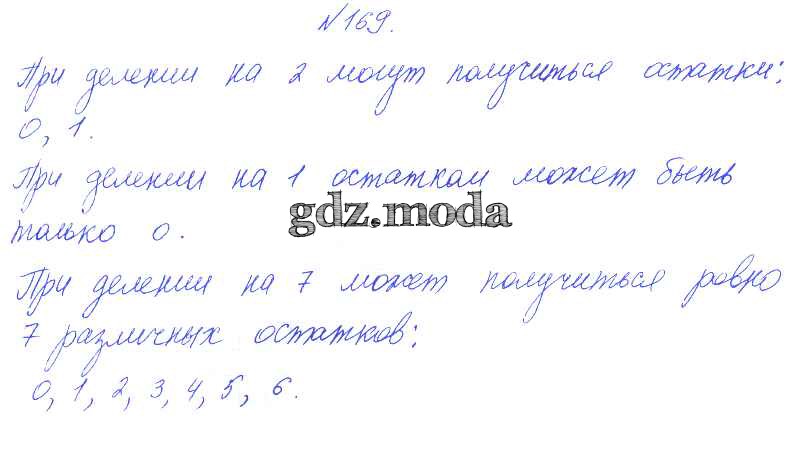 №169.
При делении на 2 могут получиться остатки:
0, 1.
При делении на 1 остатком может быть
только 0.
gdz.moda
При делении на 7 может получиться ровно
7 различных остатков:
0, 1, 2, 3, 4, 5, 6.